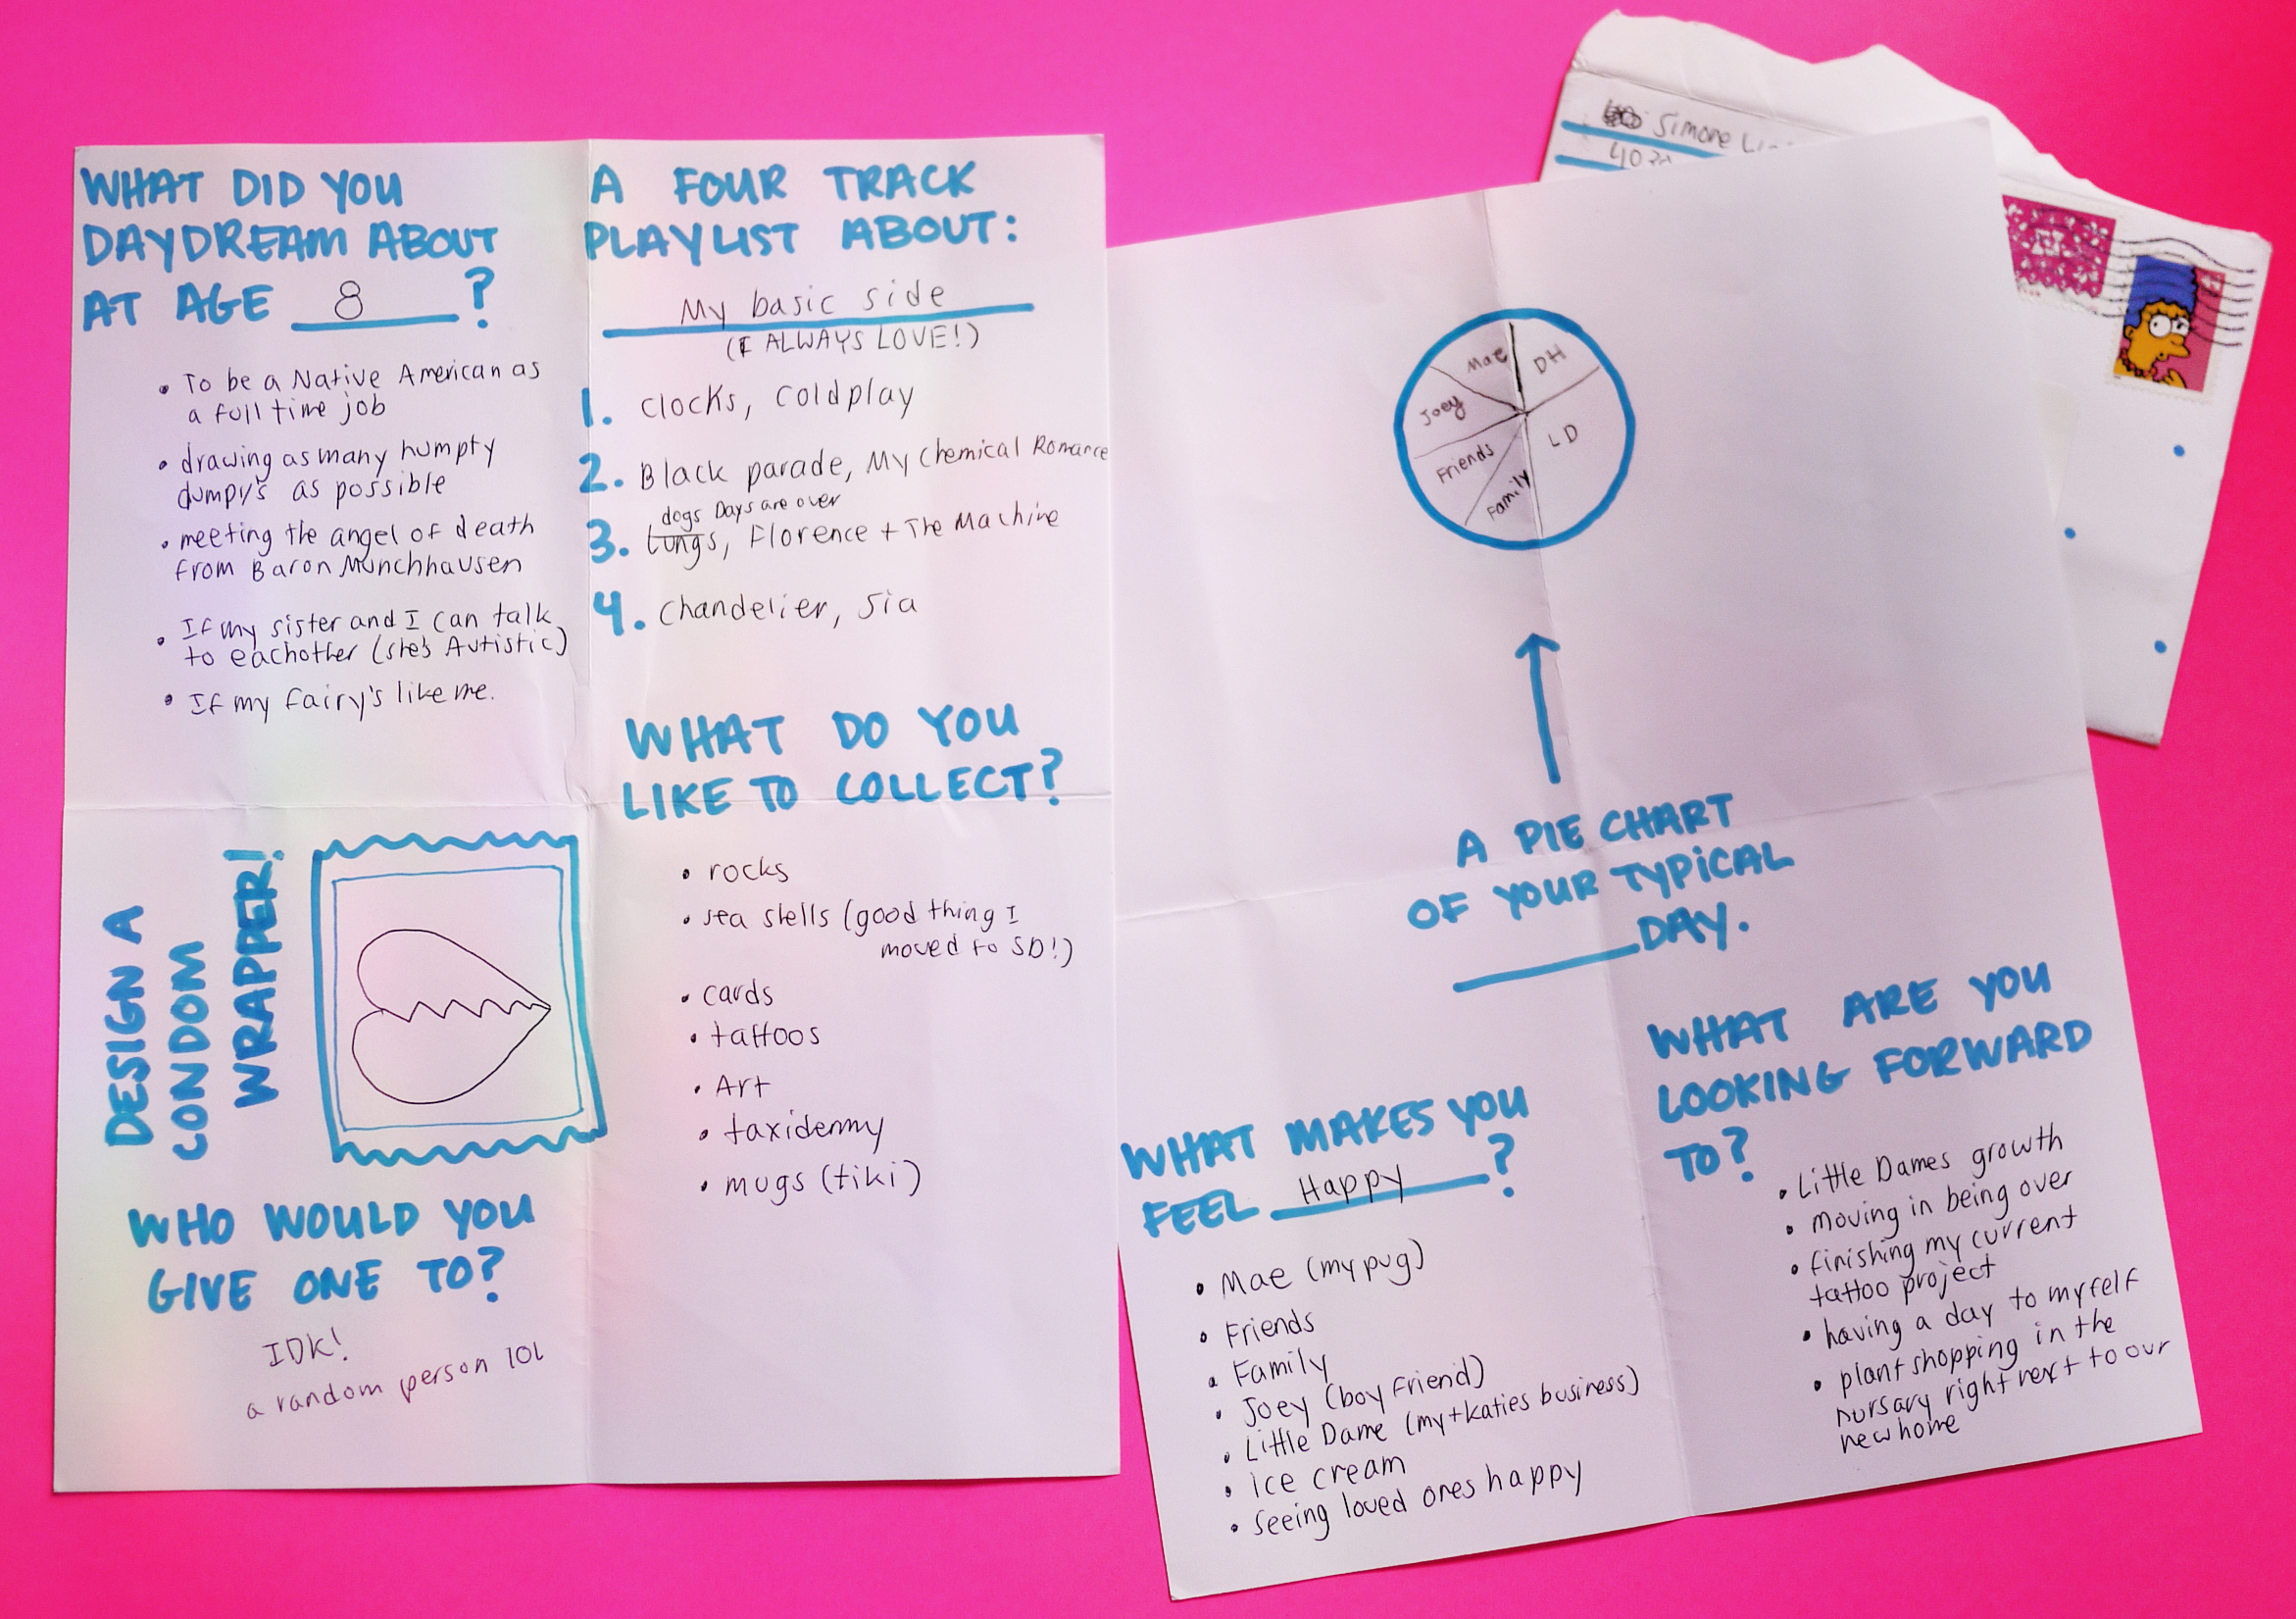 WHAT DID YOU
DAYDREAM ABOUT
AT AGE 8 ?
• To be a Native American as
a full time job
• drawing as many humpty
dumpy's as possible
• meeting the angel of death
from Baron Munchhausen
• If my sister and I can talk
to eachother (she's Autistic)
• If my fairy's like me.
A FOUR TRACK
PLAYLIST ABOUT:
My basic side
(I ALWAYS LOVE!)
1. Clocks, Coldplay
2. Black parade, My Chemical Romance
dogs Days are over
3. Lungs, Florence + The Machine
4. Chandelier, Sia
DESIGN A
CONDOM
WRAPPER!
WHO WOULD YOU
GIVE ONE TO?
IDK!
a random person lol
WHAT DO YOU
LIKE TO COLLECT?
• rocks
• sea shells (good thing I
moved to SD!)
• cards
• tattoos
• Art
• taxidermy
• mugs (tiki)
Simone
Mae
DH
Joey
LD
Friends
Family
A PIE CHART
OF YOUR TYPICAL
DAY.
WHAT MAKES YOU
FEEL Happy ?
• Mae (my pug)
• Friends
• Family
• Joey (boyfriend)
• Little Dame (my + katies business)
• ice cream
• seeing loved ones happy
WHAT ARE YOU
LOOKING FORWARD
TO?
• Little Dames growth
• moving in being over
• finishing my current
tattoo project
• having a day to myself
• plant shopping in the
nursary right next to our
new home